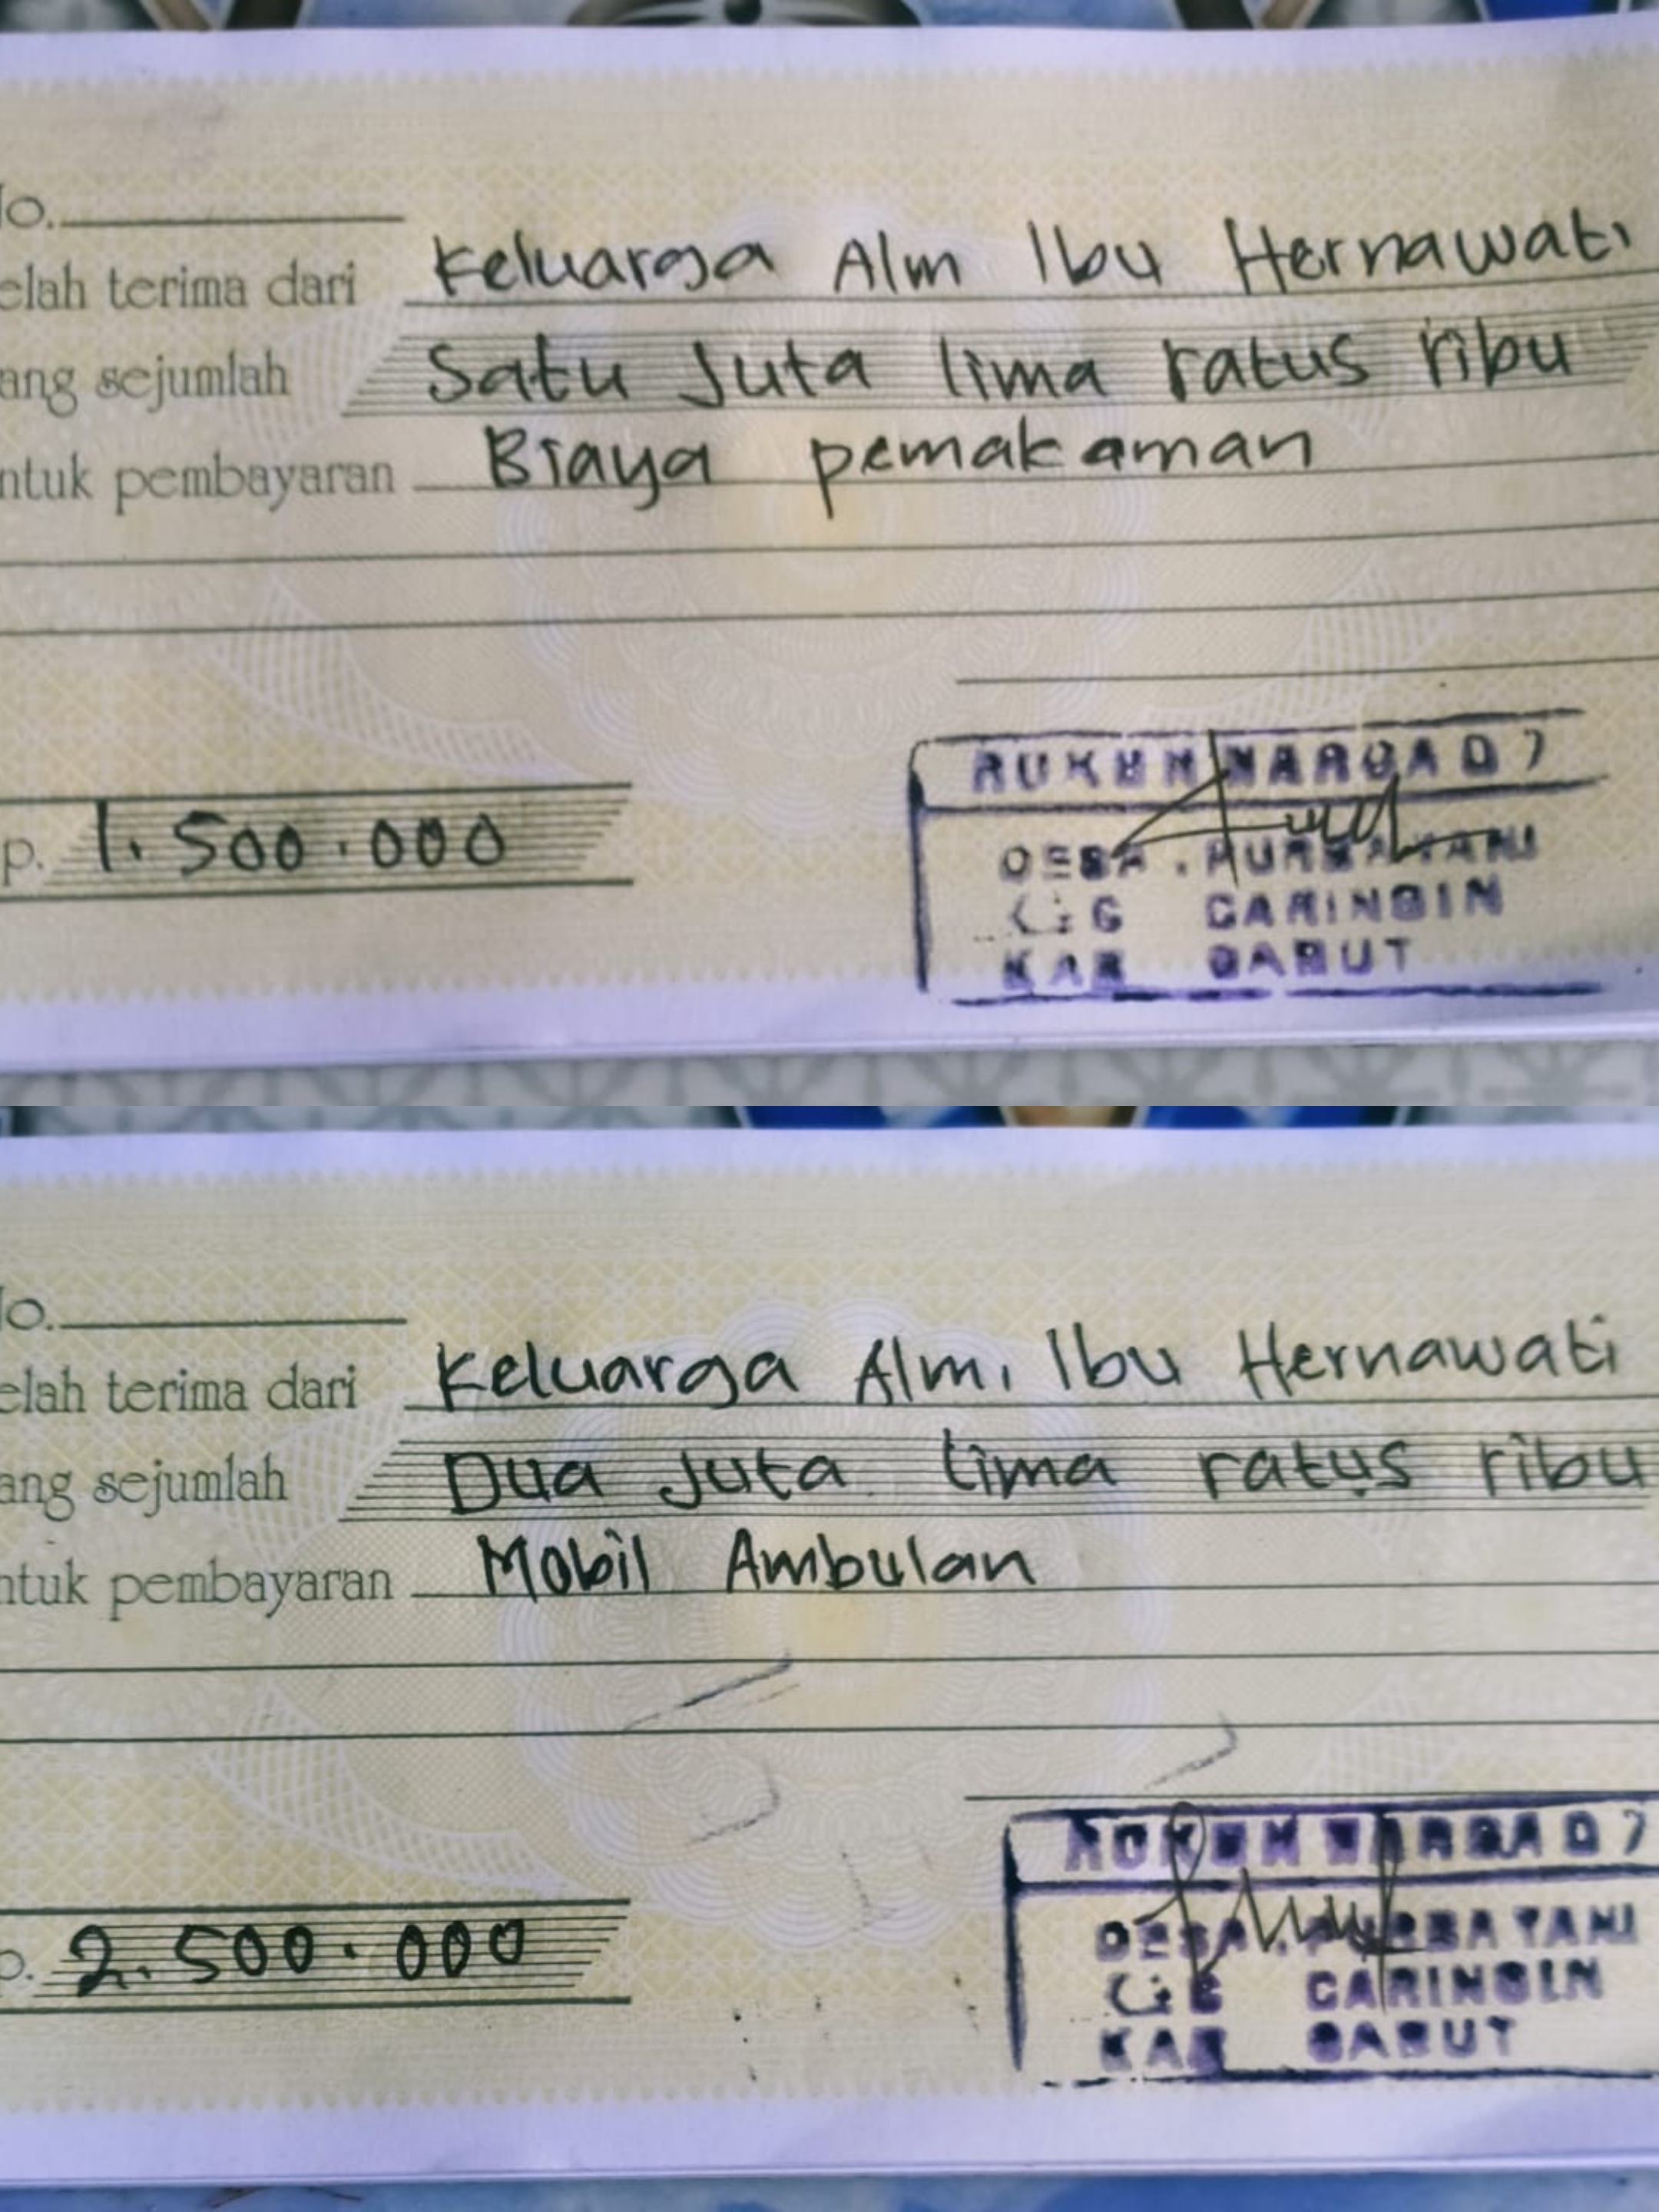 No.
elah terima dari Keluarga Alm Ibu Hernawati
ang sejumlah Satu Juta lima ratus ribu
ntuk pembayaran Biaya pemakaman
p. 1.500.000
RUKUN WARGA 07
DESA . PURBAYANI
KEC CARINGIN
KAB GARUT
No.
elah terima dari Keluarga Alm. Ibu Hernawati
ang sejumlah Dua Juta lima ratus ribu
ntuk pembayaran Mobil Ambulan
p. 2.500.000
RUKUN WARGA 07
DESA. PURBAYANI
KEC CARINGIN
KAB GARUT